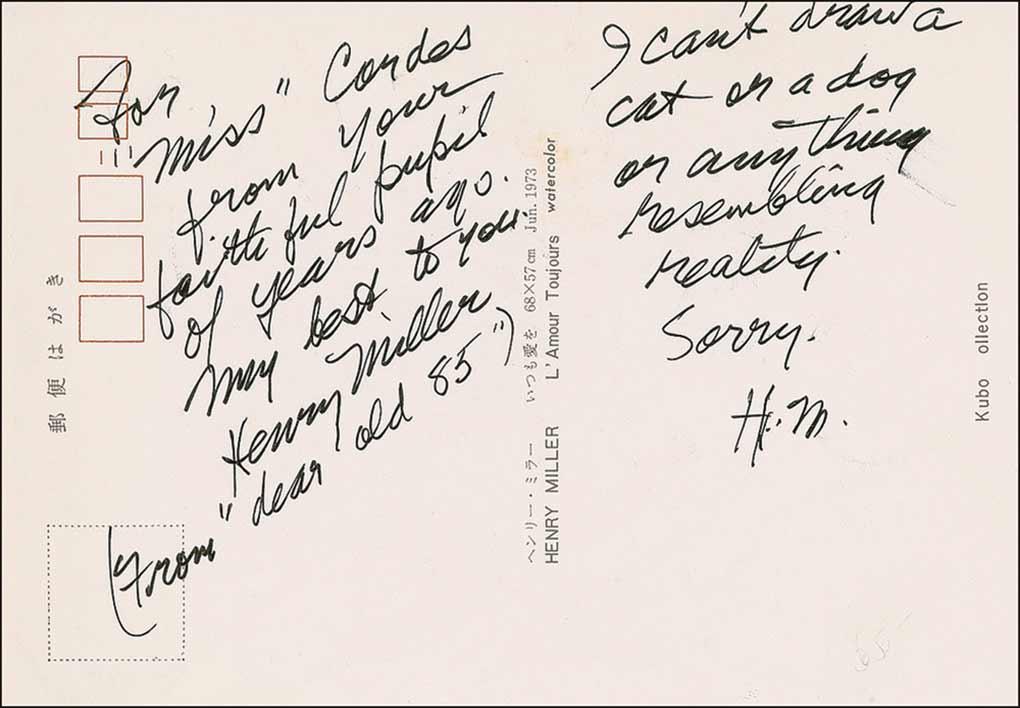 For
"Miss" Cordes
from your
faithful pupil
of years ago.
My best to you.
Henry Miller
(From "dear old 85")
I can't draw a
cat or a dog
or anything
resembling
reality.
Sorry.
H.M.
郵便はがき
ヘンリー・ミラー いつも愛を 68×57cm Jun. 1973
HENRY MILLER L'Amour Toujours watercolor
Kubo ollection